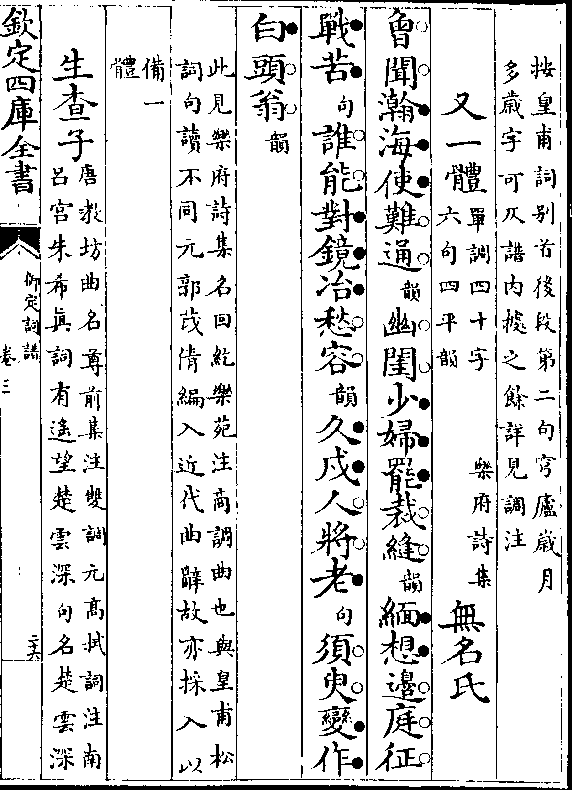 按皇甫詞别首後段第二句穹廬嵗月
多嵗字可仄譜内據之餘詳見調注
又一體單調四十字
六句四平韻
樂府詩集
無名氏
曾聞瀚海使難通韻幽閨少婦罷裁縫韻緬想邊庭征
戰苦句誰能對鏡冶愁容韻久戍人將老句須臾變作
白頭翁韻
此見樂府詩集名回紇樂苑注商調曲也與皇甫松
詞句讀不同元郭茂倩編入近代曲辭故亦採入以
備一
體
生查子唐教坊曲名尊前集注雙調元高拭詞注南
吕宫朱希真詞有遥望楚雲深句名楚雲深
欽定四庫全書
御定詞譜
卷三
二六